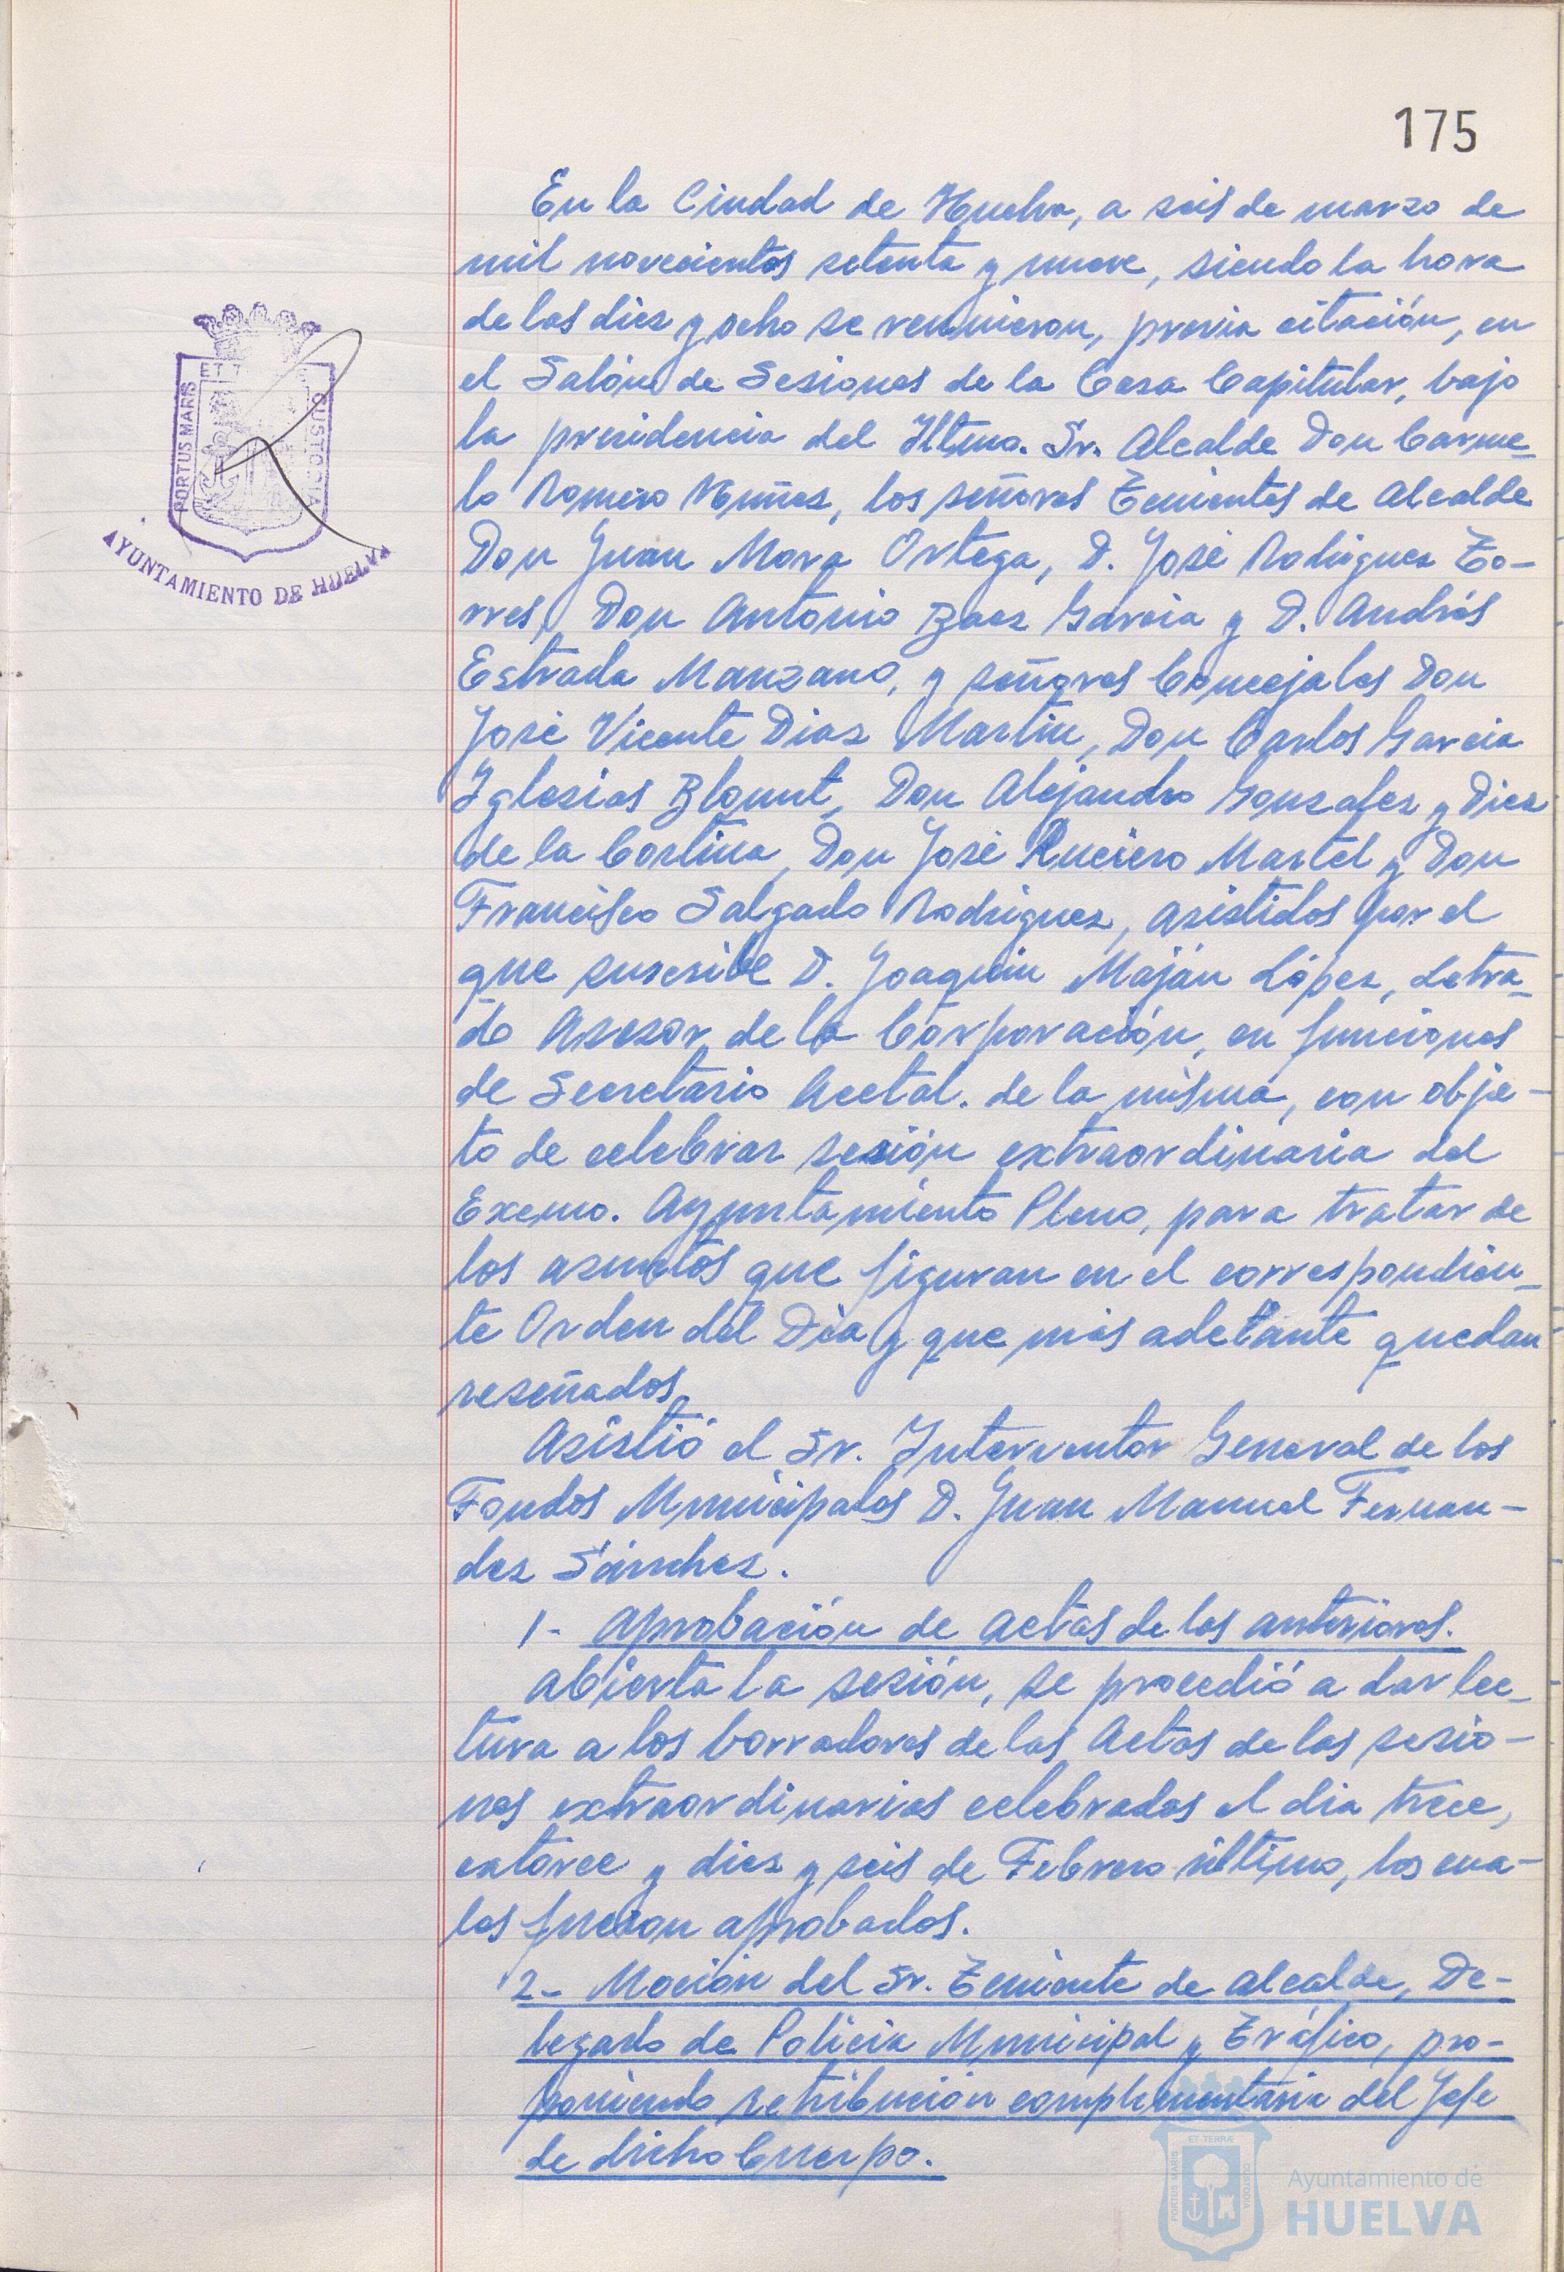 175
En la Ciudad de Huelva, a seis de marzo de
mil novecientos setenta y nueve, siendo la hora
de las diez y ocho se reunieron, previa citación, en
el Salón de Sesiones de la Casa Capitular, bajo
la presidencia del Iltmo. Sr. Alcalde Don Carme-
lo Romero Núñez, los señores Tenientes de Alcalde
Don Juan Mora Ortega, D. José Rodriguez To-
rres, Don Antonio Baez Garcia y D. Andrés
Estrada Manzano, y señores Concejales Don
José Vicente Diaz Martin, Don Carlos Garcia
Iglesias Blount, Don Alejandro Gonzalez y Diez
de la Cortina, Don José Ruciero Martel y Don
Francisco Salgado Rodriguez, asistidos por el
que suscribe D. Joaquin Maján López, Letra-
do Asesor de la Corporación, en funciones
de Secretario Acctal. de la misma, con obje-
to de celebrar sesión extraordinaria del
Excmo. Ayuntamiento Pleno, para tratar de
los asuntos que figuran en el correspondien-
te Orden del Dia y que más adelante quedan
reseñados.
Asistió el Sr. Interventor General de los
Fondos Municipales D. Juan Manuel Fernan-
dez Sánchez.
1- Aprobación de actas de las anteriores.
Abierta la sesión, se procedió a dar lec-
tura a los borradores de las Actas de las sesio-
nes extraordinarias celebradas el dia trece,
catorce y diez y seis de Febrero último, los cua-
les fueron aprobados.
2- Moción del Sr. Teniente de Alcalde, De-
legado de Policia Municipal y Tráfico, pro-
poniendo retribución complementaria del Jefe
de dicho Cuerpo.
PORTUS MARIS
ET
CUSTODIA
AYUNTAMIENTO DE HUELVA
PORTUS MARIS
ET TERRÆ
CUSTODIA
Ayuntamiento de
HUELVA